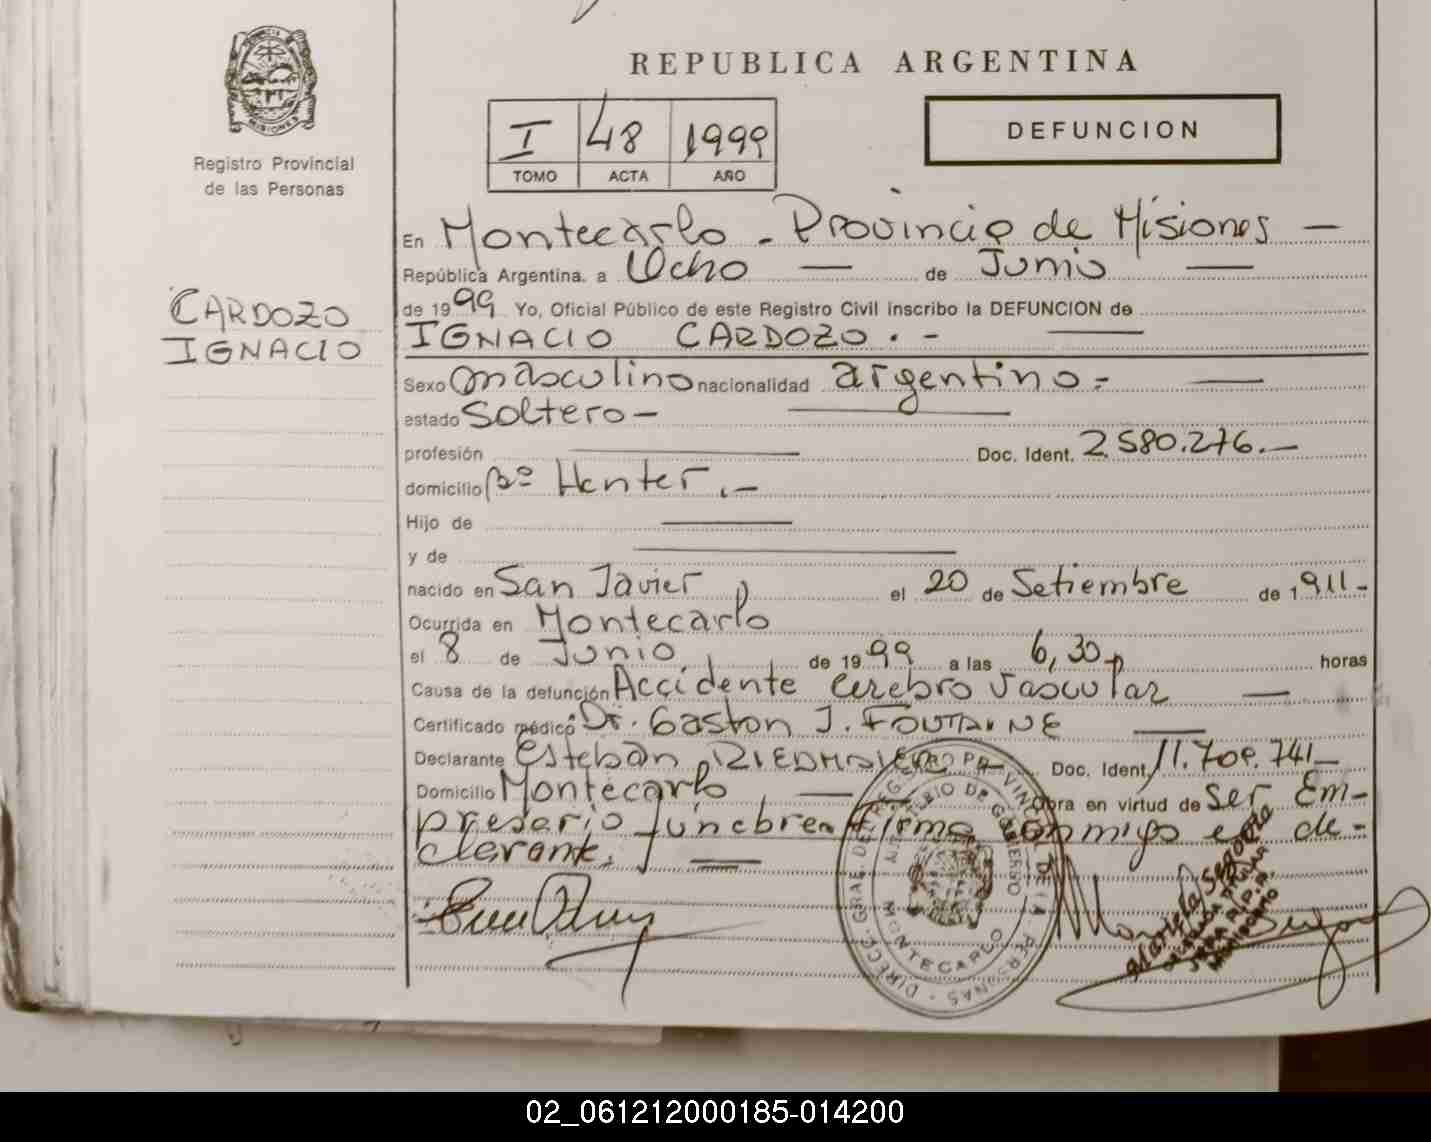 REPUBLICA ARGENTINA
I 48 1999
TOMO ACTA AÑO
DEFUNCION
MISIONES
Registro Provincial
de las Personas
CARDOZO
IGNACIO
En Montecarlo - Provincia de Misiones —
República Argentina. a Ocho — de Junio —
de 1999 Yo, Oficial Público de este Registro Civil inscribo la DEFUNCION de
IGNACIO CARDOZO . - —
Sexo masculino nacionalidad argentino = —
estado Soltero — —
profesión — Doc. Ident. 2.580.276. —
domicilio Bº Henter . —
Hijo de —
y de —
nacido en San Javier el 20 de Setiembre de 1.911 -
Ocurrida en Montecarlo
el 8 de Junio de 1999 a las 6,30 horas
Causa de la defunción Accidente Cerebro Vascular —
Certificado médico Dr. Gaston J. FOUTAINE —
Declarante Esteban Doc. Ident. 741 —
Domicilio Montecarlo — Obra en virtud de ser Em-
presario fúnebre. Firma conmigo el de-
clarante. —
MINISTERIO DE GOBIERNO
MONTECARLO
Marcela Segovia
02_061212000185-014200